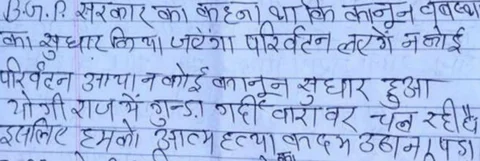 B.J.P. सरकार का कहना था कि कानून वेवस्था
का सुधार किया जऐंगा परिर्वतन लऐंगें न कोई
परिर्वतन आया न कोई कानून सुधार हुआ
योगी राज में गुन्डा गर्दी बाराबर चल रही है
इसलिए हमको आत्म हत्या कदम उठाना पडा